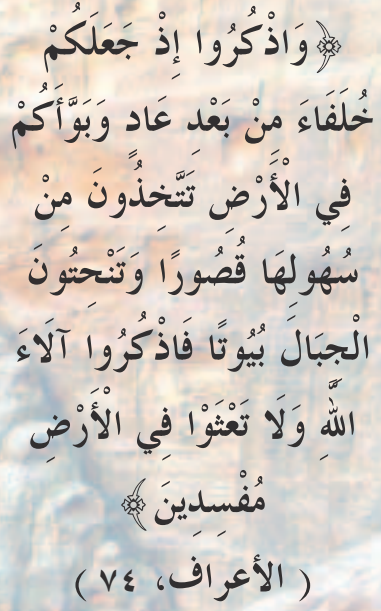 ﴿وَاذْكُرُوا إِذْ جَعَلَكُمْ
خُلَفَاءَ مِنْ بَعْدِ عَادٍ وَبَوَّأَكُمْ
فِي الْأَرْضِ تَتَّخِذُونَ مِنْ
سُهُولِهَا قُصُورًا وَتَنْحِتُونَ
الْجِبَالَ بُيُوتًا فَاذْكُرُوا آلَاءَ
اللَّهِ وَلَا تَعْثَوْا فِي الْأَرْضِ
مُفْسِدِينَ﴾
( الأعراف، ٧٤ )